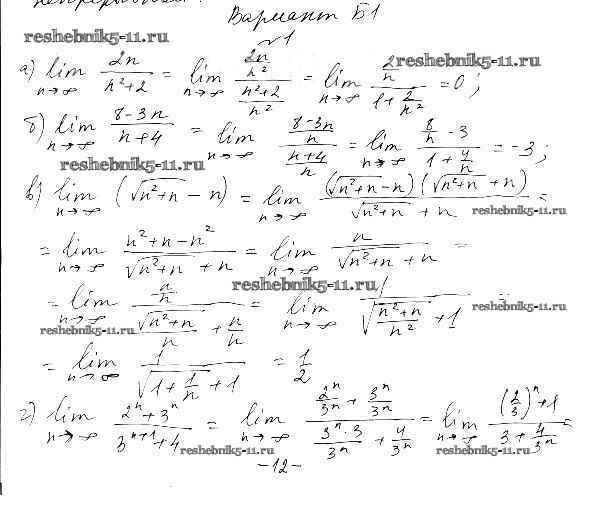 Вариант Б1
reshebnik5-11.ru
№1
а) lim n→∞ 2n/(n²+2) = lim n→∞ (2n/n²)/((n²+2)/n²) = lim n→∞ (2/n)/(1+2/n²) = 0;
reshebnik5-11.ru
б) lim n→∞ (8-3n)/(n+4) = lim n→∞ ((8-3n)/n)/((n+4)/n) = lim n→∞ (8/n - 3)/(1+4/n) = -3;
reshebnik5-11.ru
в) lim n→∞ (√(n²+n) - n) = lim n→∞ (√(n²+n) - n)(√(n²+n) + n)/(√(n²+n) + n) =
reshebnik5-11.ru
= lim n→∞ (n²+n-n²)/(√(n²+n) + n) = lim n→∞ n/(√(n²+n) + n) =
reshebnik5-11.ru
= lim n→∞ (n/n)/(√(n²+n)/n + n/n) = lim n→∞ 1/(√((n²+n)/n²) + 1) =
reshebnik5-11.ru
reshebnik5-11.ru
= lim n→∞ 1/(√(1+1/n) + 1) = 1/2
г) lim n→∞ (2ⁿ+3ⁿ)/(3ⁿ⁺¹+4) = lim n→∞ (2ⁿ/3ⁿ + 3ⁿ/3ⁿ)/(3ⁿ·3/3ⁿ + 4/3ⁿ) = lim n→∞ ((2/3)ⁿ+1)/(3+4/3ⁿ) =
reshebnik5-11.ru
reshebnik5-11.ru
-12-